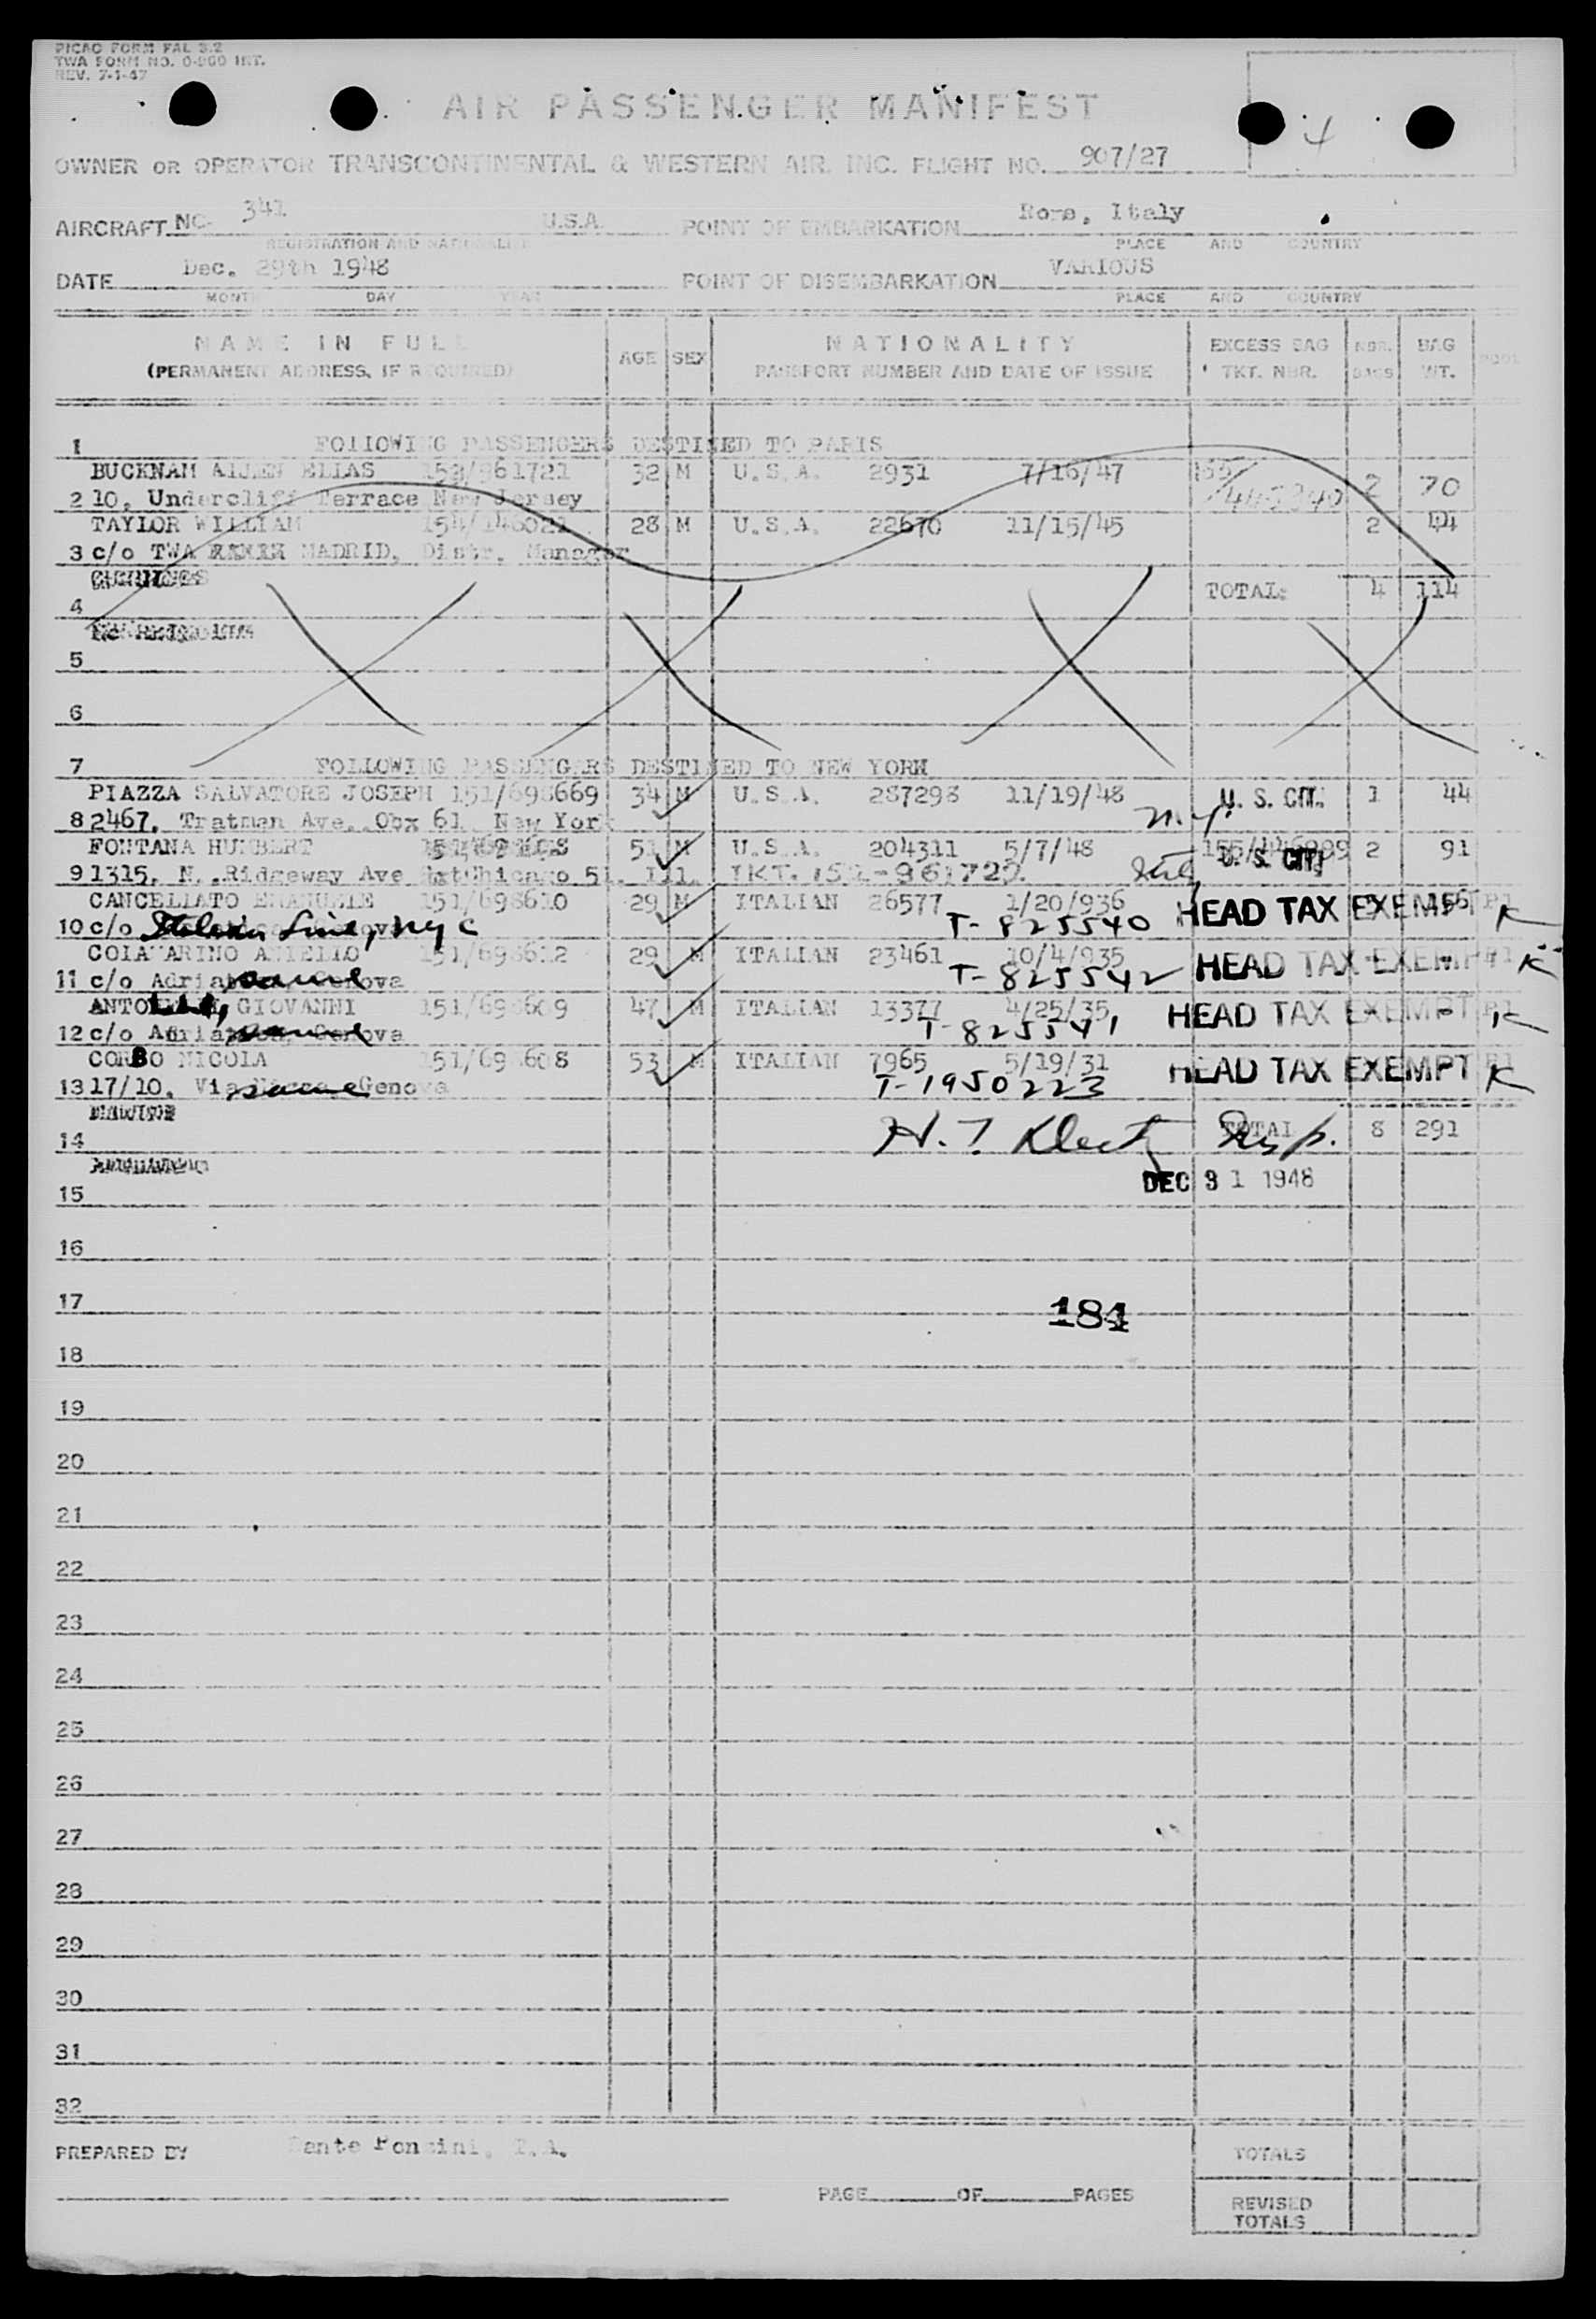 PICAO FORM FAL 3.2
TWA FORM NO. 0-200 INT.
REV. 7-1-47
AIR PASSENGER MANIFEST
4
OWNER OR OPERATOR TRANSCONTINENTAL & WESTERN AIR. INC. FLIGHT NO. 907/27
AIRCRAFT NC- 341 U.S.A. POINT OF EMBARKATION Rome, Italy
REGISTRATION AND NATIONALITY PLACE AND COUNTRY
DATE Dec. 29th 1948 POINT OF DISEMBARKATION VARIOUS
MONTH DAY YEAR PLACE AND COUNTRY
NAME IN FULL AGE SEX NATIONALITY EXCESS BAG NBR. BAG
(PERMANENT ADDRESS, IF REQUIRED) PASSPORT NUMBER AND DATE OF ISSUE TKT. NBR. BAGS WT.
1 FOLLOWING PASSENGERS DESTINED TO PARIS
BUCKNAM 32 M U.S.A. 2931 7/16/47 2 70
2 10, Undercliff Terrace New Jersey
TAYLOR WILLIAM 28 M U.S.A. 22670 11/15/45 2 44
3 c/o TWA MADRID, Distr. Manager
TOTAL: 4 114
4
5
6
7 FOLLOWING PASSENGERS DESTINED TO NEW YORK
PIAZZA SALVATORE JOSEPH 151/698669 34 M U.S.A. 287298 11/19/48 U. S. CIT. 1 44
8 2467, Tratman Ave. 61 New York
FONTANA HUMBERT 51 M U.S.A. 204311 5/7/48 U. S. CIT. 2 91
9 1315, N. Ridgeway Ave Chicago 51, Ill. TKT. 152-961729
CANCELLATO EMANUELE 151/698610 29 M ITALIAN 26577 1/20/936 HEAD TAX EXEMPT 5 156 K
10 c/o Line, NYC T-825540
ANIELLO 151/698612 29 M ITALIAN 23461 10/4/935 HEAD TAX EXEMPT K
11 c/o same T-825542
GIOVANNI 151/698609 47 M ITALIAN 13377 4/25/35 HEAD TAX EXEMPT K
12 c/o same T-825541
CORBO NICOLA 151/698608 53 M ITALIAN 7965 5/19/31 HEAD TAX EXEMPT K
13 17/10, Via same Genova T-1950223
14 TOTAL 8 291
DEC 31 1948
15
16
17 184
18
19
20
21
22
23
24
25
26
27
28
29
30
31
32
PREPARED BY TOTALS
PAGE OF PAGES
REVISED
TOTALS